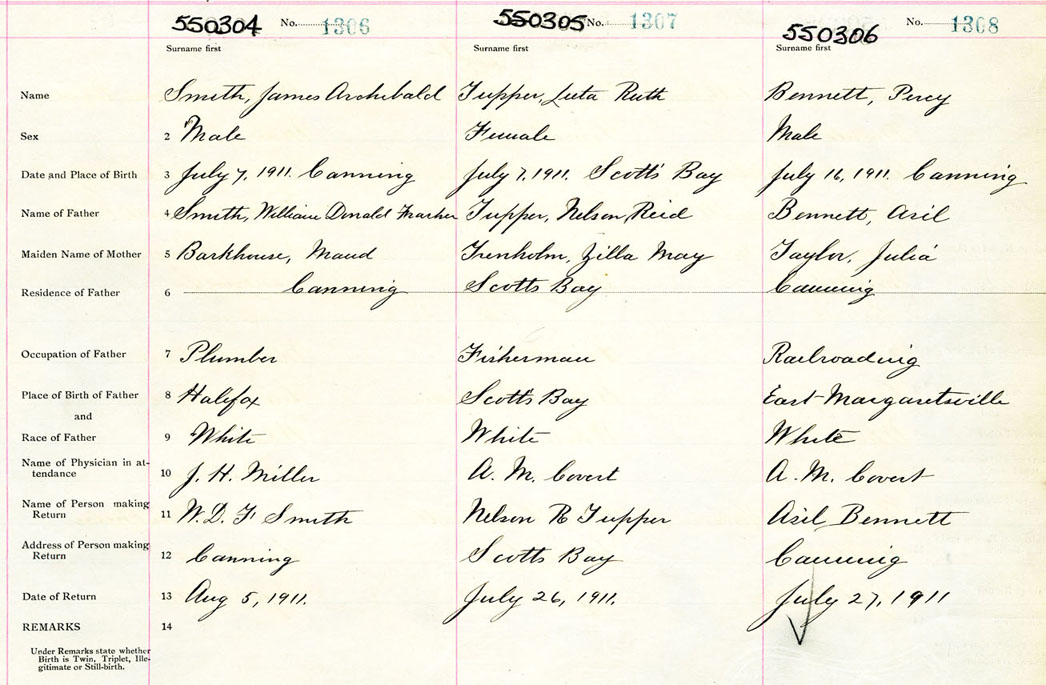 550304 No. 1306 550305 No. 1307 550306 No. 1308
Surname first Surname first Surname first
Name Smith, James Archibald Tupper, Luta Ruth Bennett, Percy
Sex 2 Male Female Male
Date and Place of Birth 3 July 7, 1911. Canning July 7, 1911. Scotts Bay July 16, 1911. Canning
Name of Father 4 Smith, William Donald Tupper, Nelson Reid Bennett, Asil
Maiden Name of Mother 5 Barkhouse, Maud Trenholm, Zilla May Taylor, Julia
Residence of Father 6 Canning Scotts Bay Canning
Occupation of Father 7 Plumber Fisherman Railroading
Place of Birth of Father 8 Halifax Scotts Bay East Margaretsville
and
Race of Father 9 White White White
Name of Physician in at-
tendance 10 J. H. Miller A. M. Covert A. M. Covert
Name of Person making
Return 11 W. D. F Smith Nelson R Tupper Asil Bennett
Address of Person making
Return 12 Canning Scotts Bay Canning
Date of Return 13 Aug 5, 1911. July 26, 1911. July 27, 1911
REMARKS 14
Under Remarks state whether
Birth is Twin, Triplet, Ille-
gitimate or Still-birth.